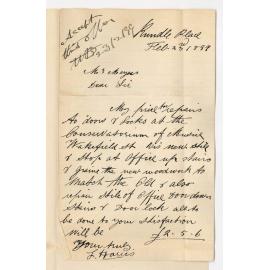 Accept
this offer
Grundle Place
Feb 22nd 1899
Mr Meyers
Dear Sir
My price to repairs
to doors & locks at the
Conservatorium of Music
Wakefield St Viz new stile
& stop at Office up stairs
& grain the new woodwork to
match the old & also
repair stile of Office door down
stairs & Door lock all to
be done to your satisfaction
will be £2-5-6
Yours truly
J Harris